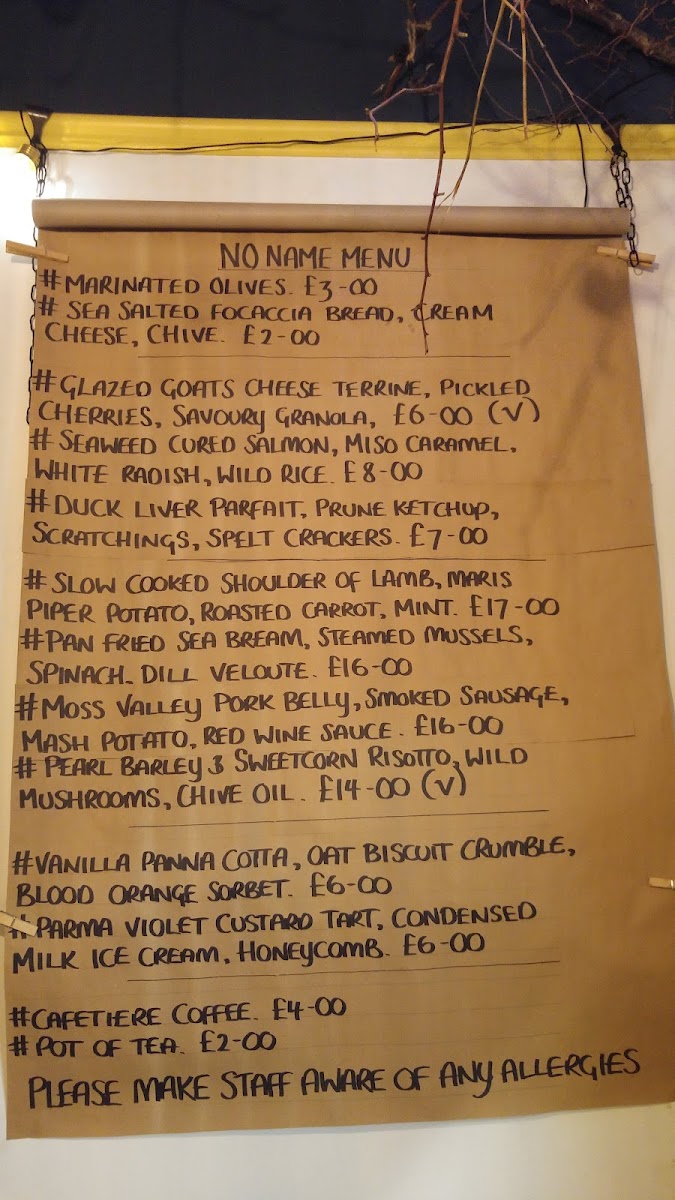 NO NAME MENU
# MARINATED OLIVES. £3-00
# SEA SALTED FOCACCIA BREAD, CREAM
CHEESE, CHIVE. £2-00
# GLAZED GOATS CHEESE TERRINE, PICKLED
CHERRIES, SAVOURY GRANOLA, £6-00 (V)
# SEAWEED CURED SALMON, MISO CARAMEL,
WHITE RADISH, WILD RICE. £8-00
# DUCK LIVER PARFAIT, PRUNE KETCHUP,
SCRATCHINGS, SPELT CRACKERS. £7-00
# SLOW COOKED SHOULDER OF LAMB, MARIS
PIPER POTATO, ROASTED CARROT, MINT. £17-00
# PAN FRIED SEA BREAM, STEAMED MUSSELS,
SPINACH. DILL VELOUTE. £16-00
# MOSS VALLEY PORK BELLY, SMOKED SAUSAGE,
MASH POTATO, RED WINE SAUCE. £16-00
# PEARL BARLEY & SWEETCORN RISOTTO, WILD
MUSHROOMS, CHIVE OIL. £14-00 (V)
# VANILLA PANNA COTTA, OAT BISCUIT CRUMBLE,
BLOOD ORANGE SORBET. £6-00
# PARMA VIOLET CUSTARD TART, CONDENSED
MILK ICE CREAM, HONEYCOMB. £6-00
# CAFETIERE COFFEE. £4-00
# POT OF TEA. £2-00
PLEASE MAKE STAFF AWARE OF ANY ALLERGIES